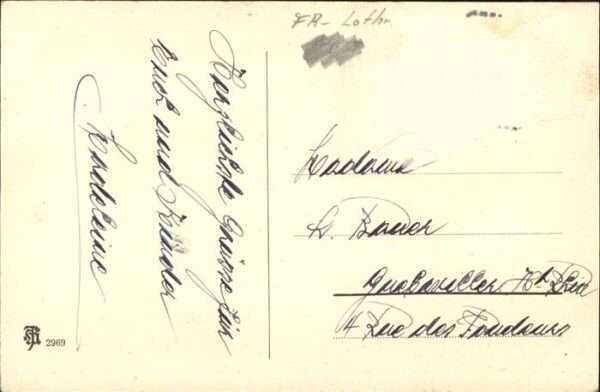 FR- Lothr
Herzlichste Grüsse für
Euch und Kinder
Madeleine
Madame
L. Bauer
Guebwiller Ht Rhin
4 Rue des Tondeurs
2969